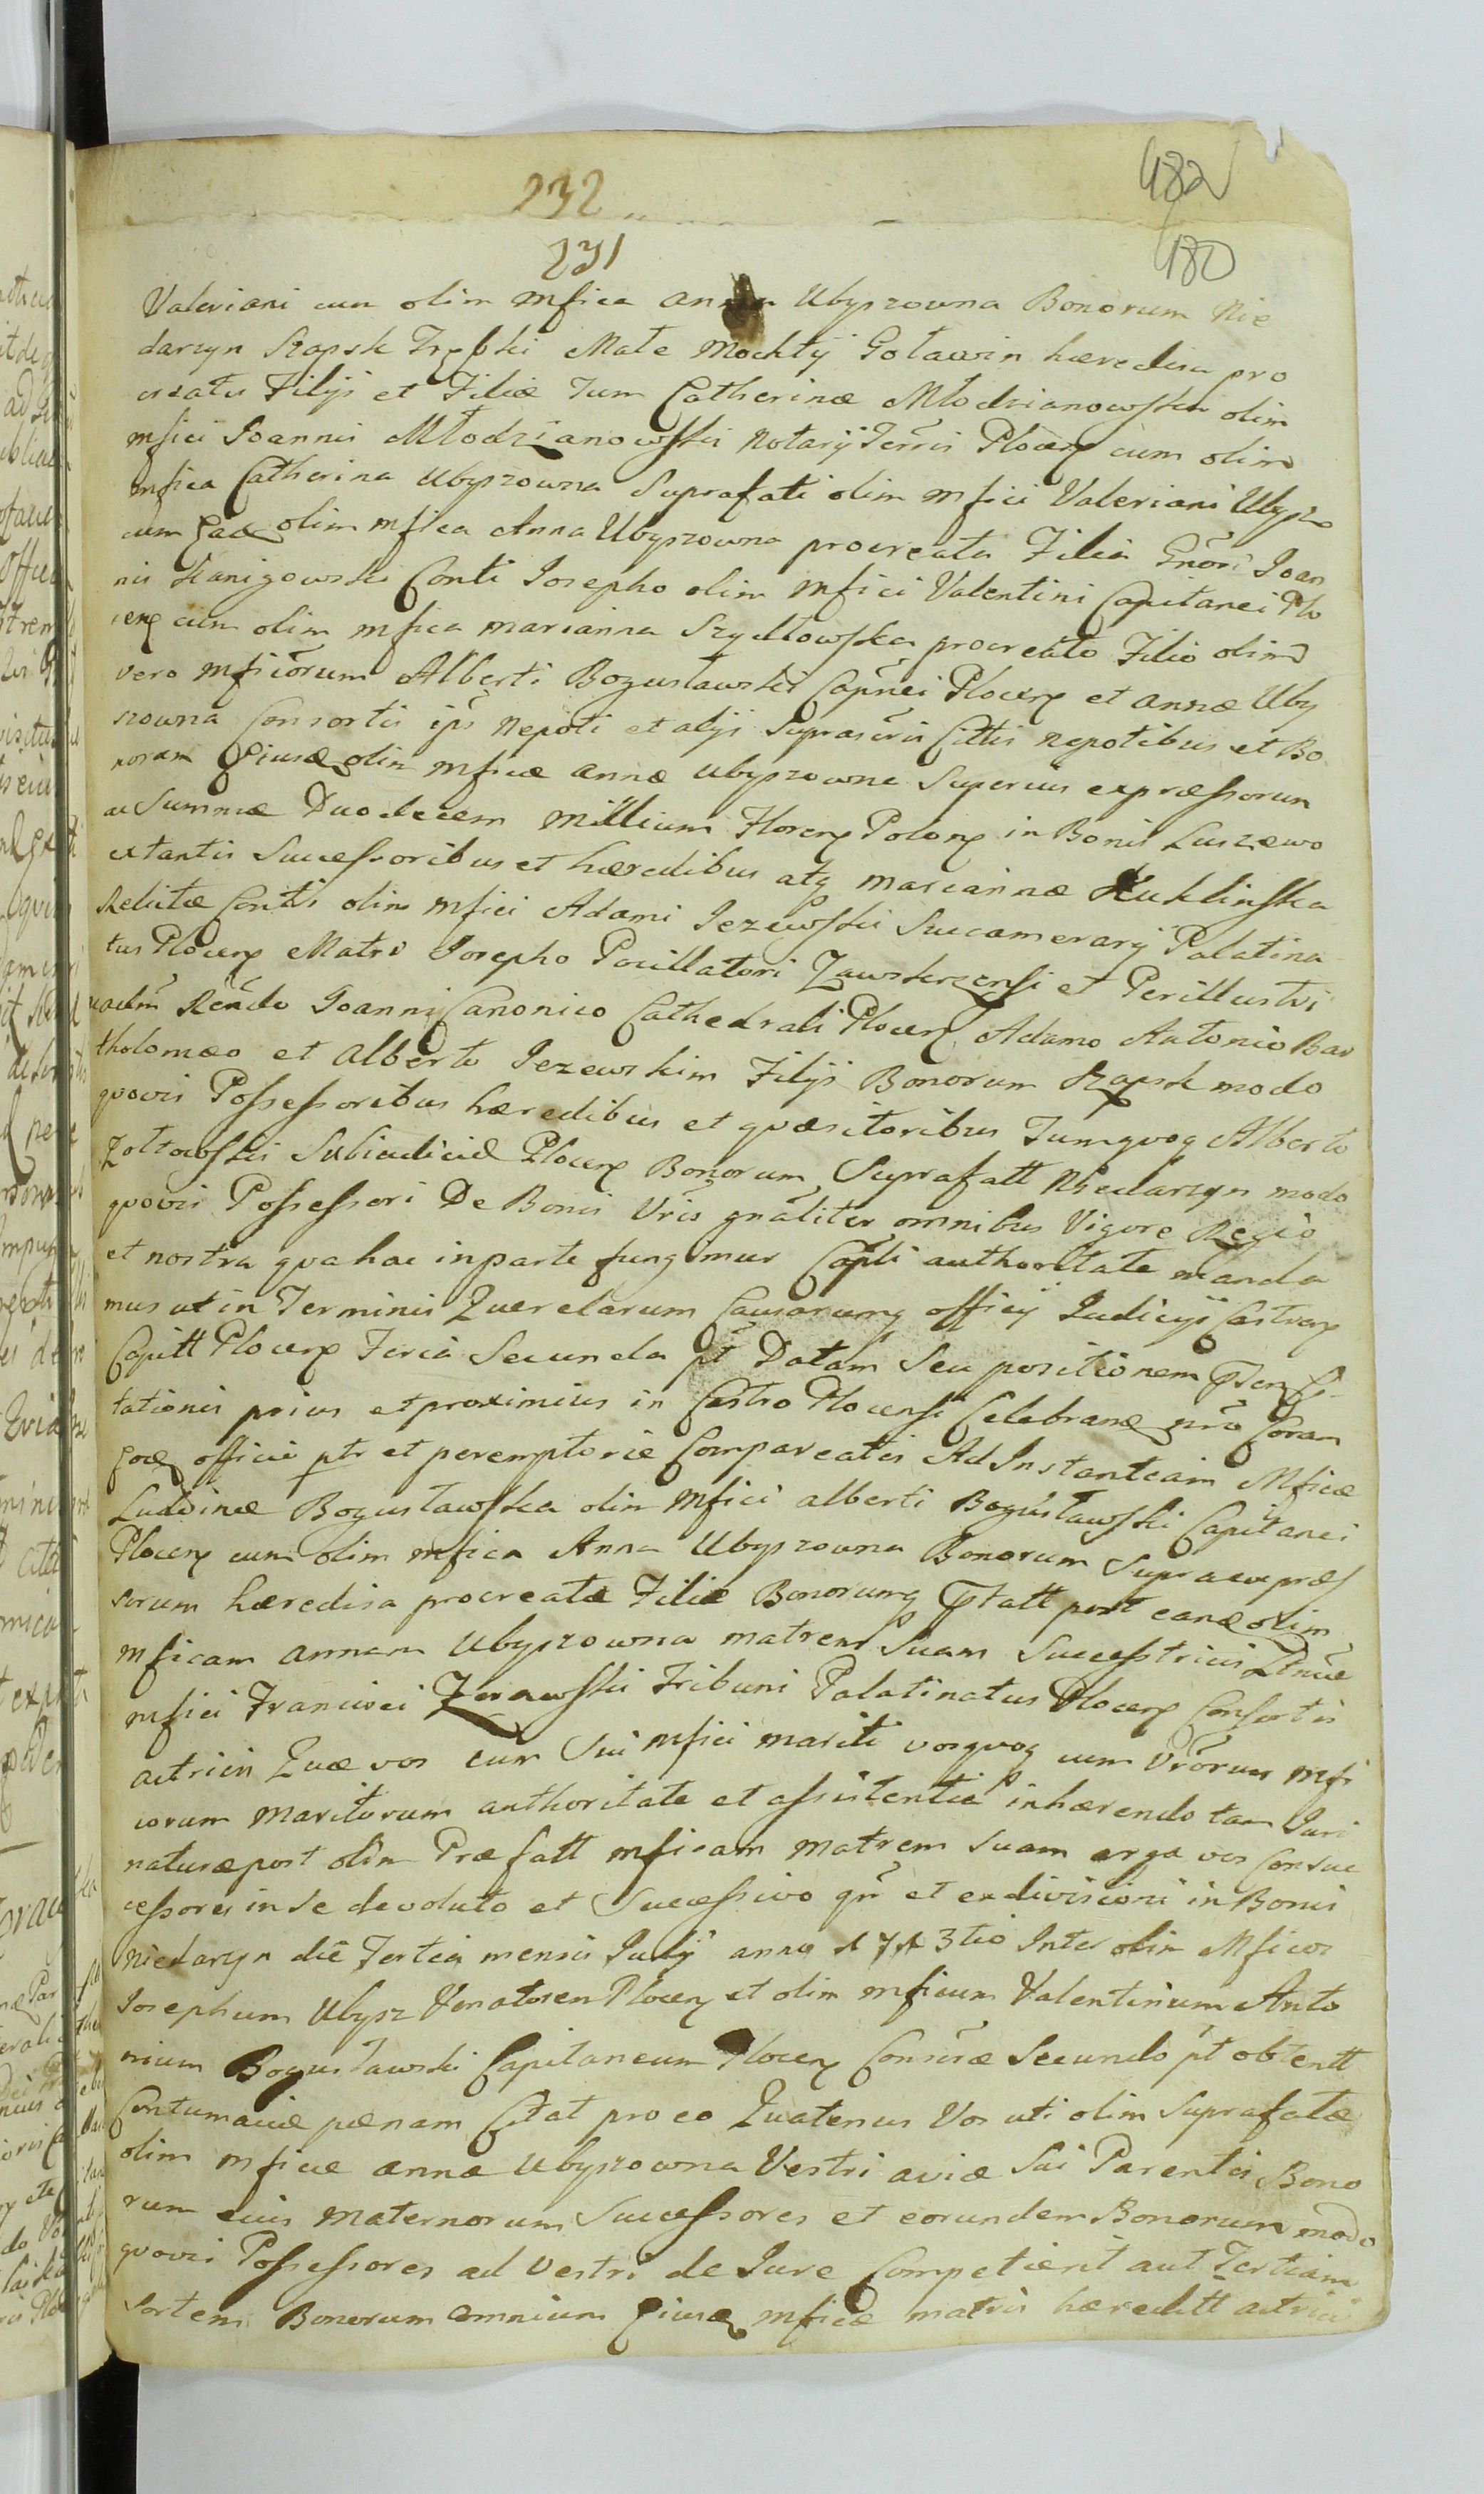 232
231
482
180
Valeriani cum olim Mfica Anna Ubyszowna Bonorum Nie
darzyn Szapsk Trębki Małe Mochty Goławin hæredisa pro
creatis Filijs et Filiæ Tum Catherinæ Młodzianowska olim
Mfici Joannis Młodzianowski Notarij Terris Plocen cum olim
Mfica Catherina Ubyszowna Suprafati olim Mfici Valeriani Ubysz
cum Eadq olim Mfica Anna Ubyszowna procreata Filia Gnosi Joan
nis Kanigowski Conti Josepho olim Mfici Valentini Capitanei Plo
cen cum olim Mfica Marianna Szydłowska procreato Filio olim
vero Mficorum Alberti Bogusławski Capnei Plocen et Annæ Uby
szowna Consortis ips Nepoti et alijs Suprascris Cittis Nepotibus et Bo
noram Eiusd olim Mficæ Annæ Ubyszowne Superius expressorum
ac Summæ Duodecem Millium Floren Polon in Bonis Luszewo
extantis Successoribus et hæredibus atq Mariannæ Kuklinska
Relictæ Contis olim Mfici Adami Jezewski Succamerarij Palatina
tus Plocen Matri Josepho Pocillatori Zawskrzensi et Perillustri
adm Rendo Joanni Canonico Cathedrali Plocen Adamo Antonio Bar
tholomæo et Alberto Jezewskim Filijs Bonorum Szapsk modo
quovis Possessoribus hæredibus et quæsitoribus Tumquoq Alberto
Zołtowski Subiudicie Plocen Bonorum Suprafatt Niedarzyn modo
quovis Possessori De Bonis Vris gnaliter omnibus Vigore Regio
et nostra qua hac inparte fungimur Capli authoritate manda
mus ut in Terminis Querelarum Causarumq officij Judicijs Castren
Capitt Plocen Feria Secunda pt Datam Seu positionem Psen Ci
tationis prius et proximius in Castro Plocensi Celebran nro Coram
eodq officio ptr et peremptorie Compareatis Ad Instantiam Mficæ
Ludvinæ Bogusławska olim Mfici Alberti Bogusławski Capitanei
Plocen cum olim Mfica Anna Ubyszowna Bonorum Supraexpræs
sorum hæredisa procreatæ Filiæ Bonorumq Pfatt post eand olim
Mficam Annam Ubyszowna matrem Suam Successtricis
Mfici Francisci Zurawski Tribuni Palatinatus Plocen Consortis
actricis Quæ vos cum Sui Mfici mariti vosquoq cum Vrorum Mfi
corum Maritorum authoritate et assistentia inhærendo tam Juri
naturæ post olim Præfatt Mficam Matrem Suam erga vos Consuc
cessores in se devoluto et Successivo qm et exdivisioni in Bonis
Niedarzyn die Tertia mensis Julij anno 1713tio Inter olim Mficos
Josephum Ubysz Venatorem Plocen et olim Mficum Valentinum Anto
nium Bogusławski Capitaneum Plocen Conscræ Secundo pt obtentt
Contumaciæ pænam Citat pro eo Quatenus Vos uti olim Suprafatæ
olim Mficæ Annæ Ubyszowna Vestri aviæ Sui Parentis Bono
rum eius Maternorum Successores et eorundem Bonorum modo
quovis Possessores ad Vestri de Jure Competierit aut Tertiam
Sortem Bonorum omnium Eiusd Mficæ matris hæreditt actrici